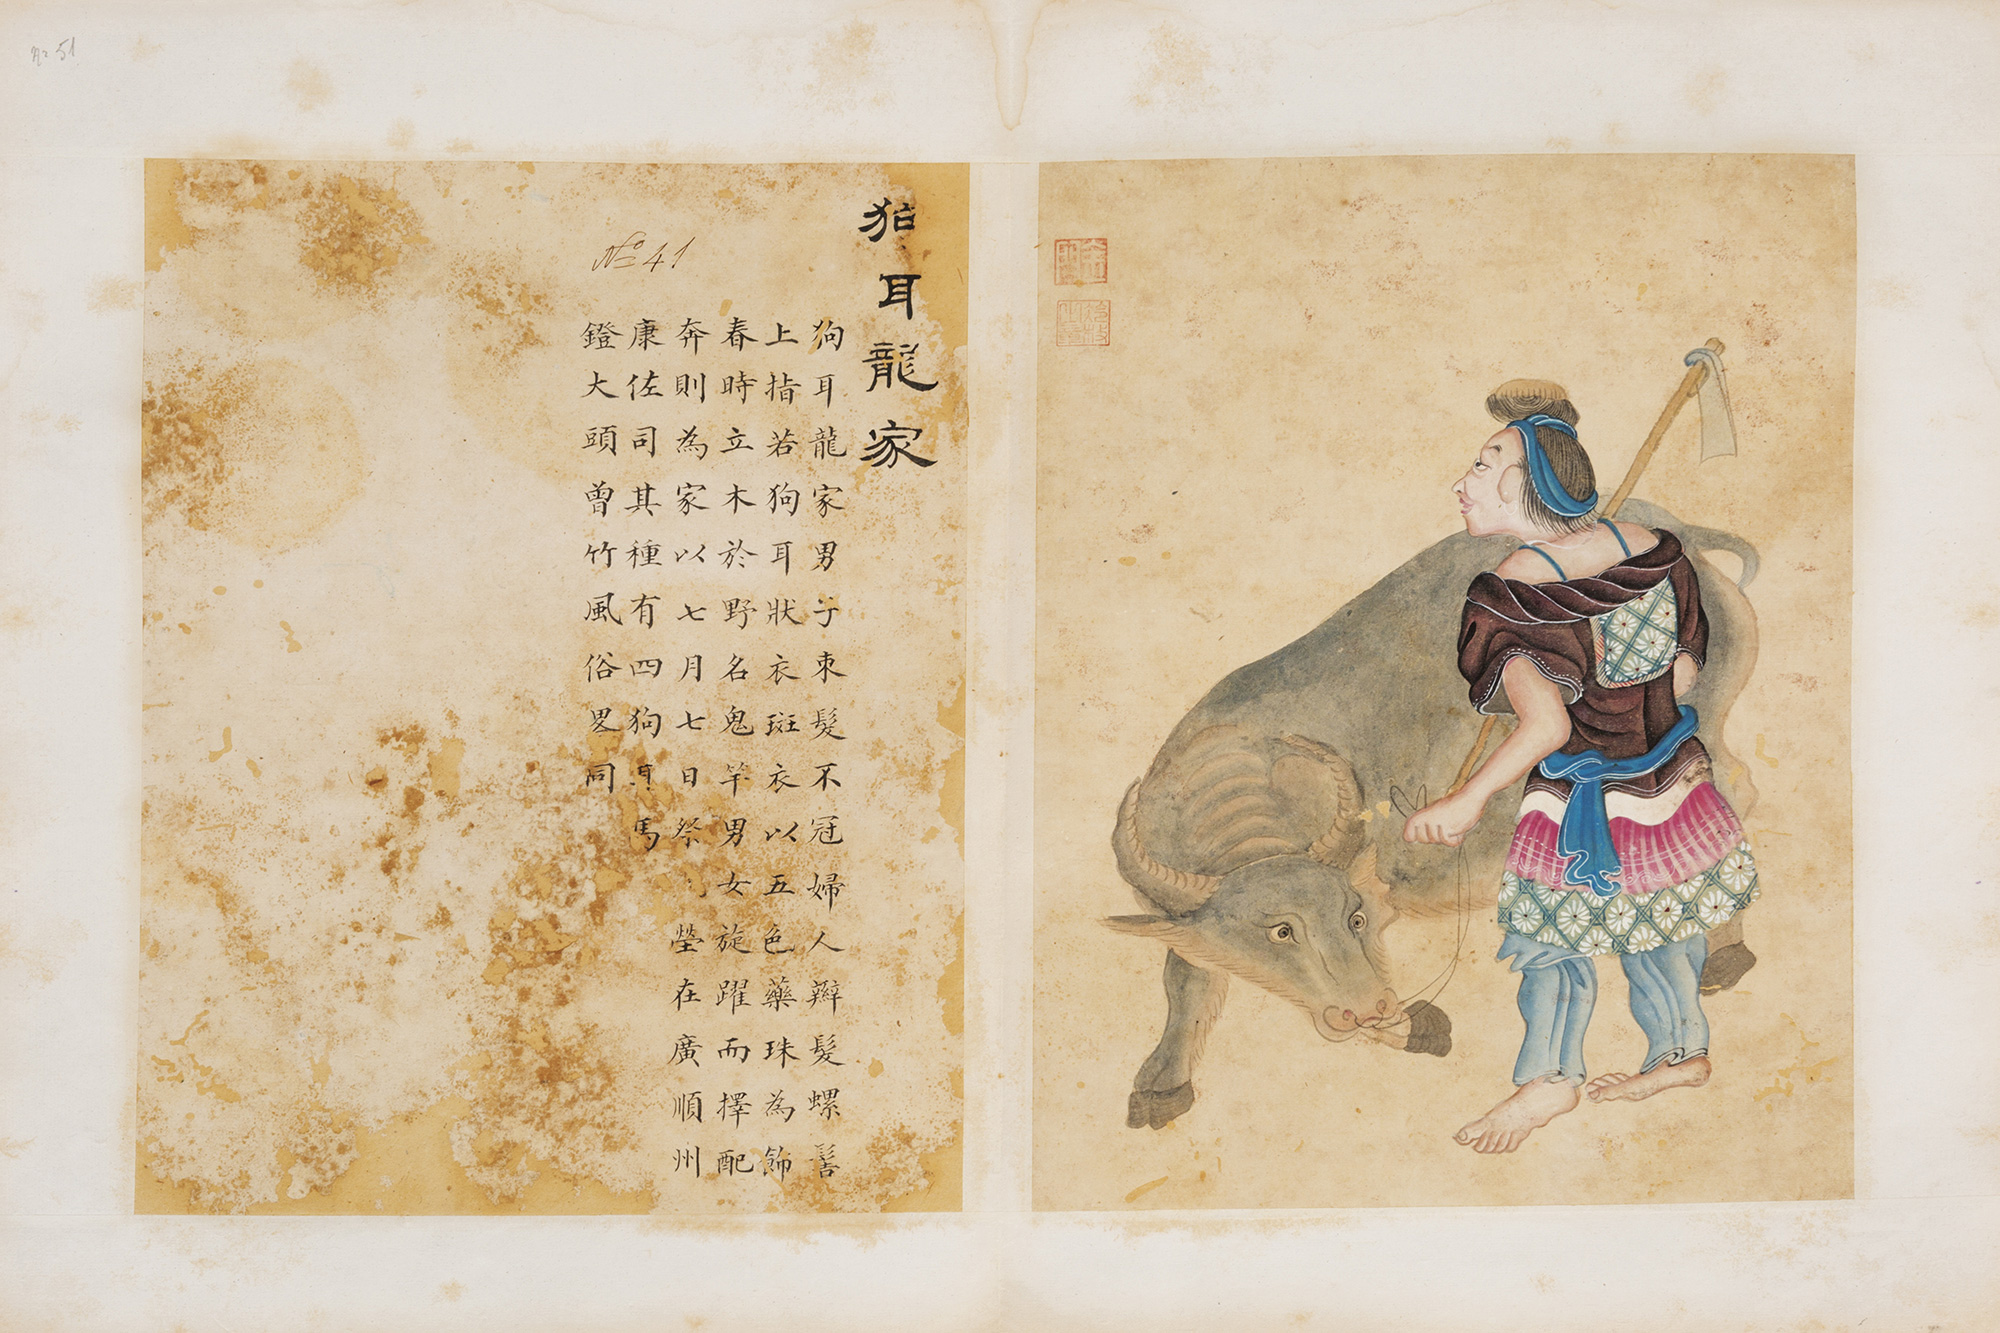 № 51
狗耳龍家
№ 41
狗耳龍家男子束髮不冠婦人辮髮螺髻
上指若狗耳狀衣斑衣以五色藥珠為飾
春時立木於野名鬼竿男女旋躍而擇配
奔則為家以七月七日祭塋在廣順州
康佐司其種有四狗耳馬
鐙大頭曾竹風俗畧同